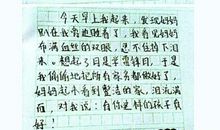 今天早上我起来，发现妈妈
趴在我旁边睡着了。我看见妈妈
布满血丝的双眼，忍不住下泪
来。想起3月5日是学雷锋日，于是
我偷偷地把所有家务都做好了，
妈妈起来看到整洁的家，泪流满
面，对我说：有你这样的孩子真
好！